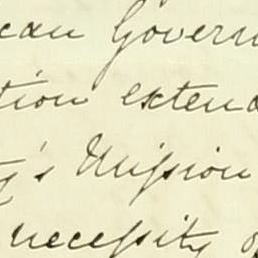 can Govern
tion extend
y's Mission
necessity o